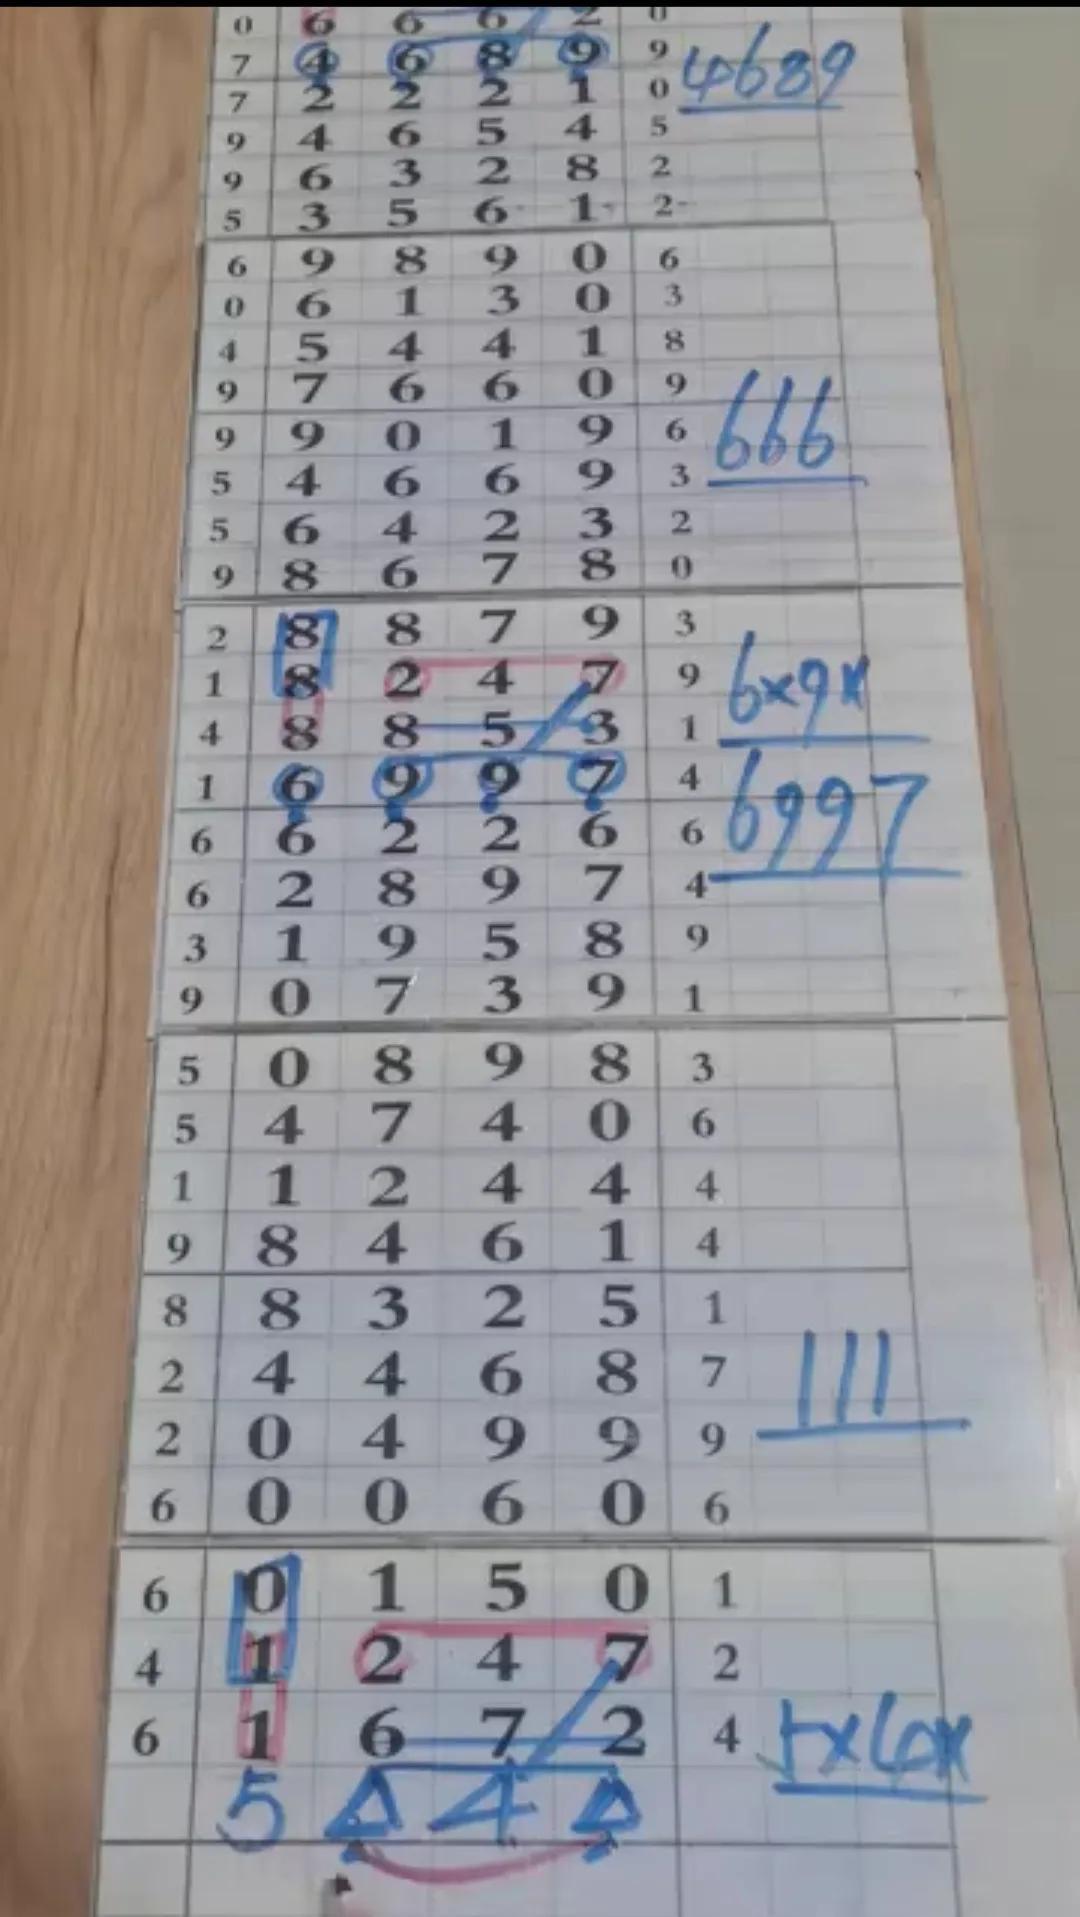 0 6 6 6 2 0
7 4 6 8 9 9 4689
7 2 2 2 1 0
9 4 6 5 4 5
9 6 3 2 8 2
5 3 5 6 1 2
6 9 8 9 0 6
0 6 1 3 0 3
4 5 4 4 1 8
9 7 6 6 0 9
9 9 0 1 9 6 666
5 4 6 6 9 3
5 6 4 2 3 2
9 8 6 7 8 0
2 8 8 7 9 3
1 8 2 4 7 9 6x9x
4 8 8 5 3 1
1 6 9 9 7 4 6997
6 6 2 2 6 6
6 2 8 9 7 4
3 1 9 5 8 9
9 0 7 3 9 1
5 0 8 9 8 3
5 4 7 4 0 6
1 1 2 4 4 4
9 8 4 6 1 4
8 8 3 2 5 1
2 4 4 6 8 7 111
2 0 4 9 9 9
6 0 0 6 0 6
6 0 1 5 0 1
4 1 2 4 7 2
6 1 6 7 2 4
5 Δ 4 Δ